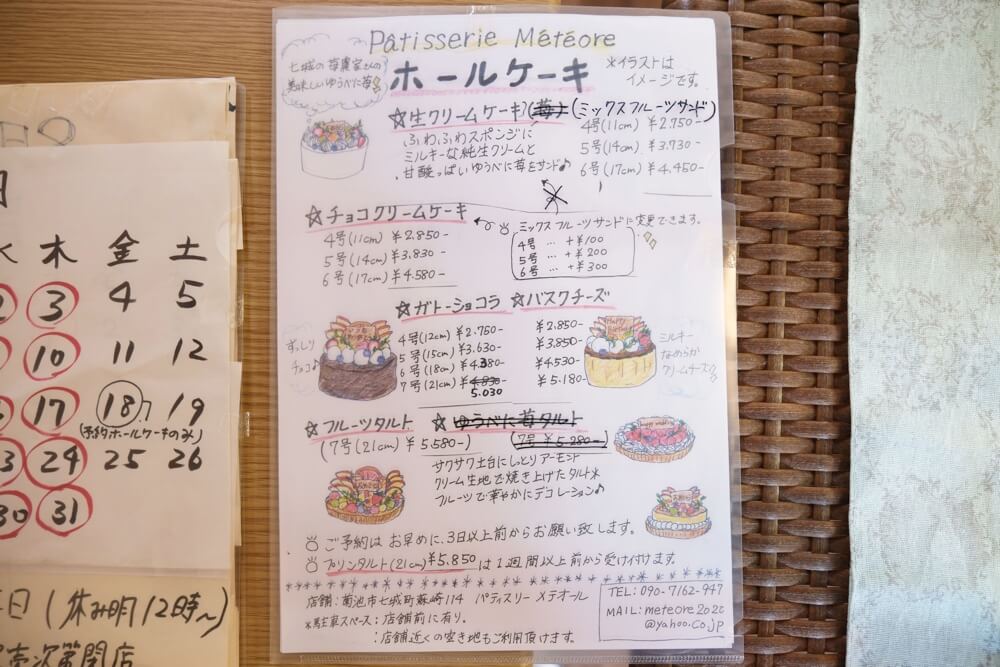 Pâtisserie Météore
七城の苺農家さんの
美味しいゆうべに苺
ホールケーキ
※イラストは
イメージです。
☆生クリームケーキ(苺)(ミックスフルーツサンド)
ふわふわスポンジに
ミルキーな純生クリームと
甘酸っぱいゆうべに苺をサンド♪
4号(11cm) ¥2.750-
5号(14cm) ¥3.730-
6号(17cm) ¥4.450-
☆チョコクリームケーキ
4号(11cm) ¥2.850-
5号(14cm) ¥3.830-
6号(17cm) ¥4.580-
ミックスフルーツサンドに変更できます。
4号 … +¥100
5号 … +¥200
6号 … +¥300
☆ガトーショコラ
ずっしり
チョコ♪
4号(12cm) ¥2.750-
5号(15cm) ¥3.630-
6号(18cm) ¥4.380-
7号(21cm) ¥4.830-
5.030
☆バスクチーズ
¥2.850-
¥3.850-
¥4.530-
¥5.180-
ミルキー
なめらか
クリームチーズ
☆フルーツタルト
(7号(21cm) ¥5.580-)
☆ゆうべに苺タルト
(7号 ¥5.280-)
サクサク土台にしっとりアーモンド
クリーム生地で焼き上げたタルト※
フルーツで華やかにデコレーション♪
ご予約は お早めに、3日以上前からお願い致します。
プリンタルト(21cm)¥5.850 は1週間以上前から受け付けます。
店舗:菊池市七城町蘇崎114 パティスリー メテオール
※駐車スペース:店舗前に有り。
:店舗近くの空き地もご利用頂けます。
TEL:090-7162-947
MAIL:meteore2022
@yahoo.co.jp
木 金 土
3 4 5
10 11 12
17 18 19
(予約ホールケーキのみ)
24 25 26
30 31
日(休み明12時〜)
売次第閉店